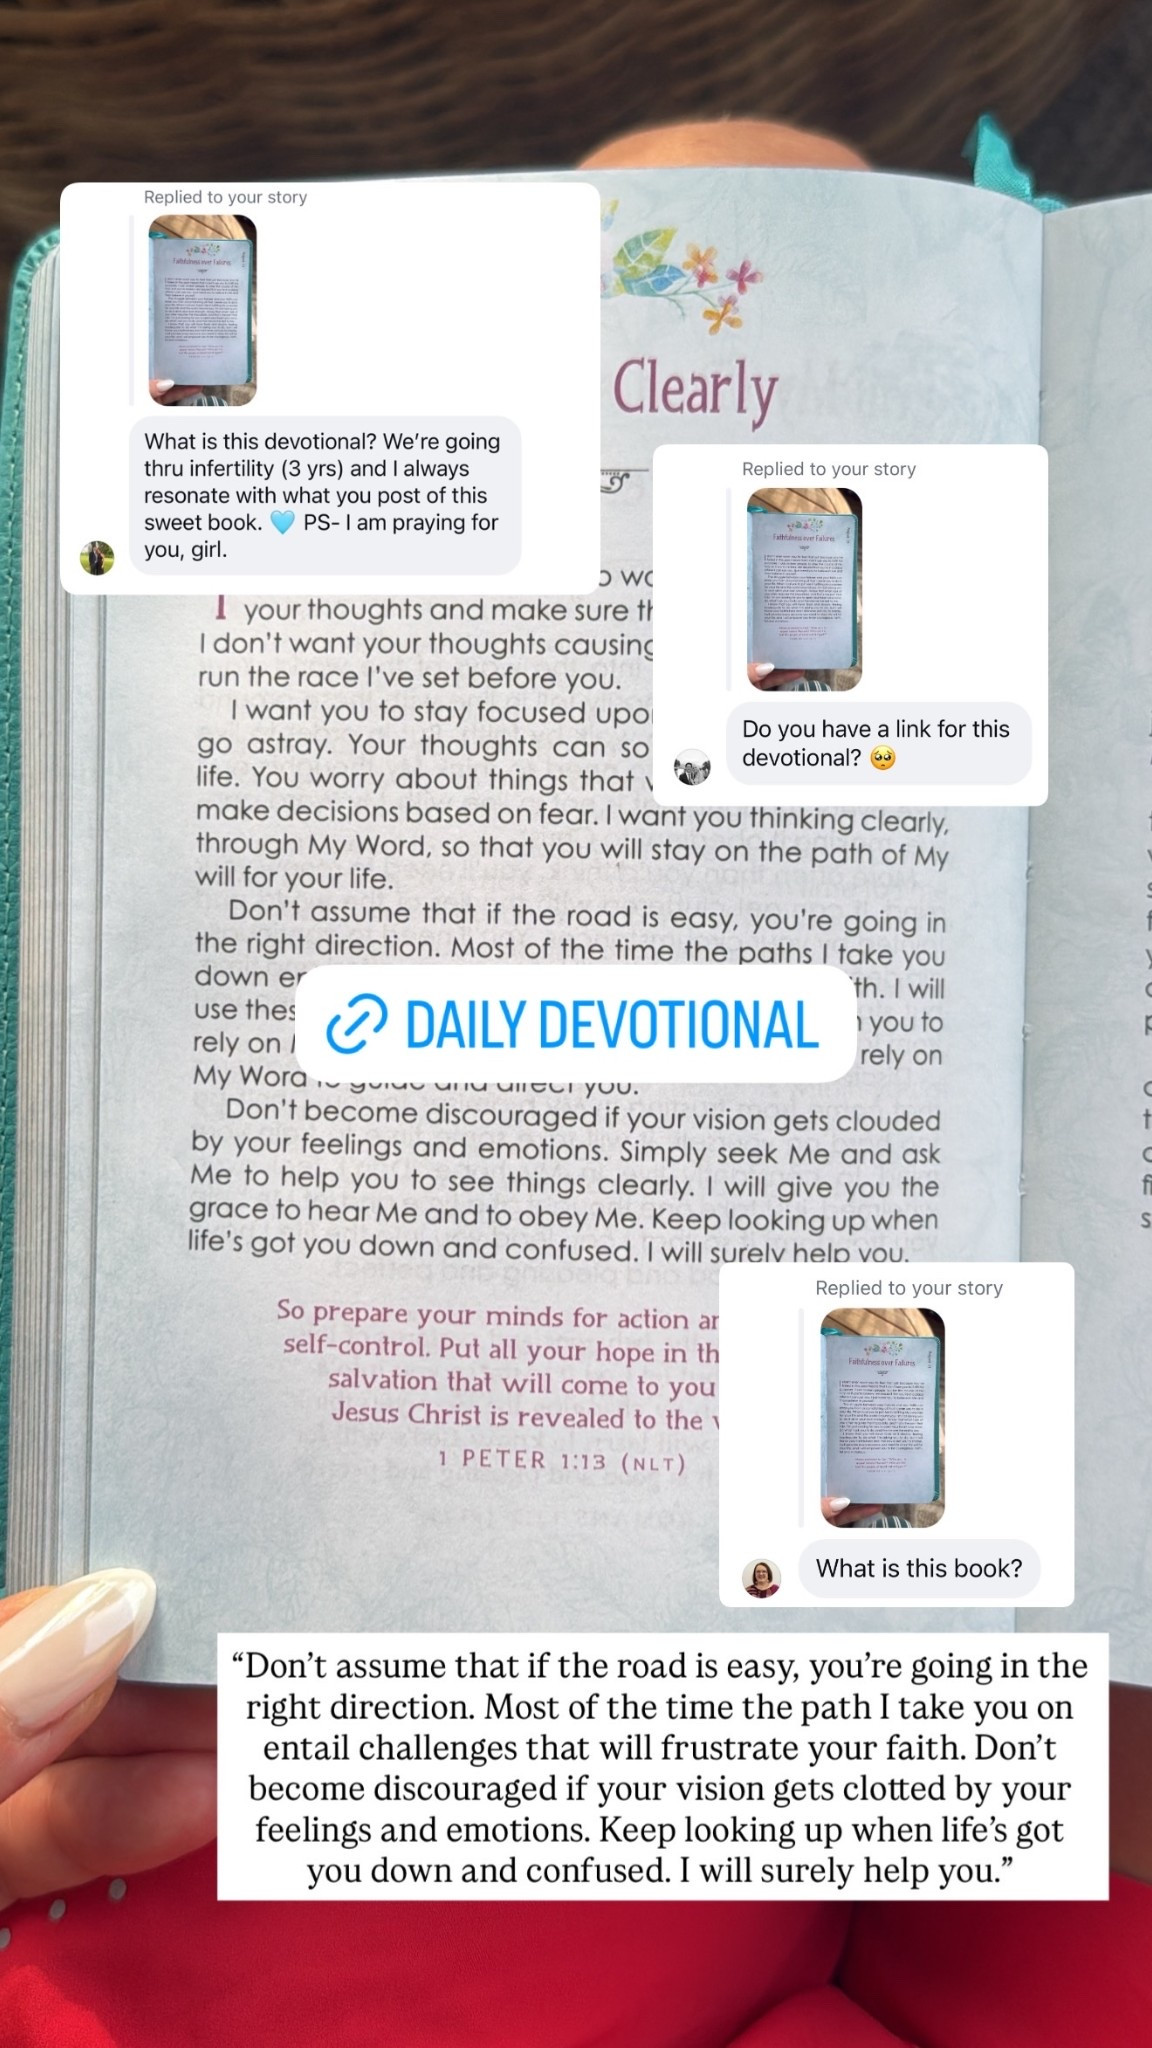 Replied to your story
What is this devotional? We're going
thru infertility (3 yrs) and I always
resonate with what you post of this
sweet book. 🩵 PS- I am praying for
you, girl.
Clearly
Replied to your story
Faithfulness over Failures
Do you have a link for this
devotional? 🥺
your thoughts and make sure
I don't want your thoughts causing
run the race I've set before you.
I want you to stay focused
go astray. Your thoughts can so
life. You worry about things that
make decisions based on fear. I want you thinking clearly,
through My Word, so that you will stay on the path of My
will for your life.
Don't assume that if the road is easy, you're going in
the right direction. Most of the time the paths I take you
down
I will
use
you to
rely on
rely on
My Word to guide and direct you.
DAILY DEVOTIONAL
Don't become discouraged if your vision gets clouded
by your feelings and emotions. Simply seek Me and ask
Me to help you to see things clearly. I will give you the
grace to hear Me and to obey Me. Keep looking up when
life's got you down and confused. I will surely help you.
So prepare your minds for action
self-control. Put all your hope in
salvation that will come to you
Jesus Christ is revealed to the
1 PETER 1:13 (NLT)
Replied to your story
Faithfulness over Failures
What is this book?
“Don't assume that if the road is easy, you're going in the
right direction. Most of the time the path I take you on
entail challenges that will frustrate your faith. Don't
become discouraged if your vision gets clotted by your
feelings and emotions. Keep looking up when life's got
you down and confused. I will surely help you.”